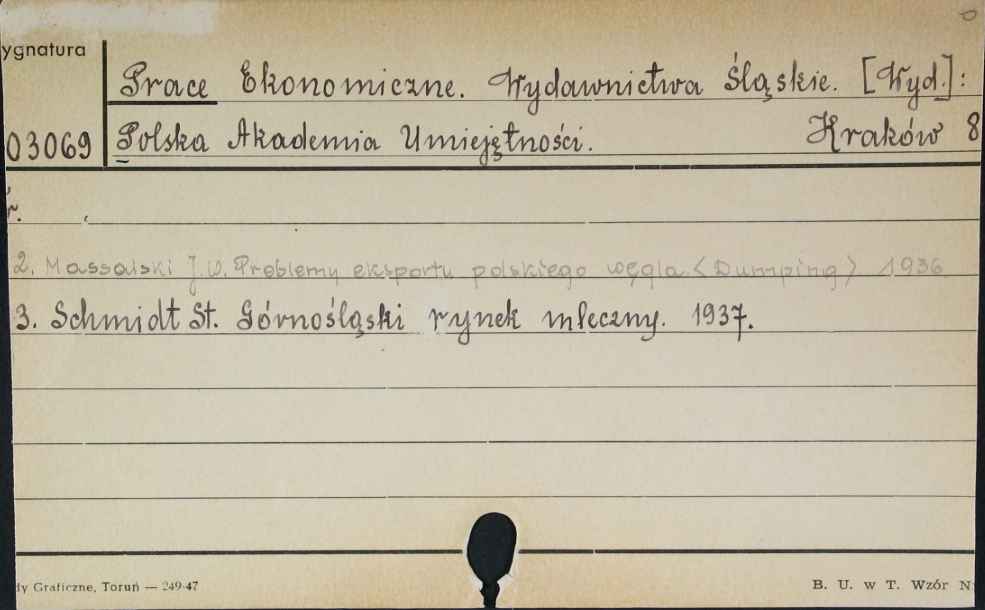 ygnatura
Prace Ekonomiczne. Wydawnictwa Śląskie. [Wyd.]:
03069 Polska Akademia Umiejętności. Kraków 8
r.
2. Massalski J.W. Problemy eksportu polskiego węgla <Dumping> 1936
3. Schmidt St. Górnośląski rynek mleczny. 1937.
dy Graficzne, Toruń — 249-47 B. U. w T. Wzór N